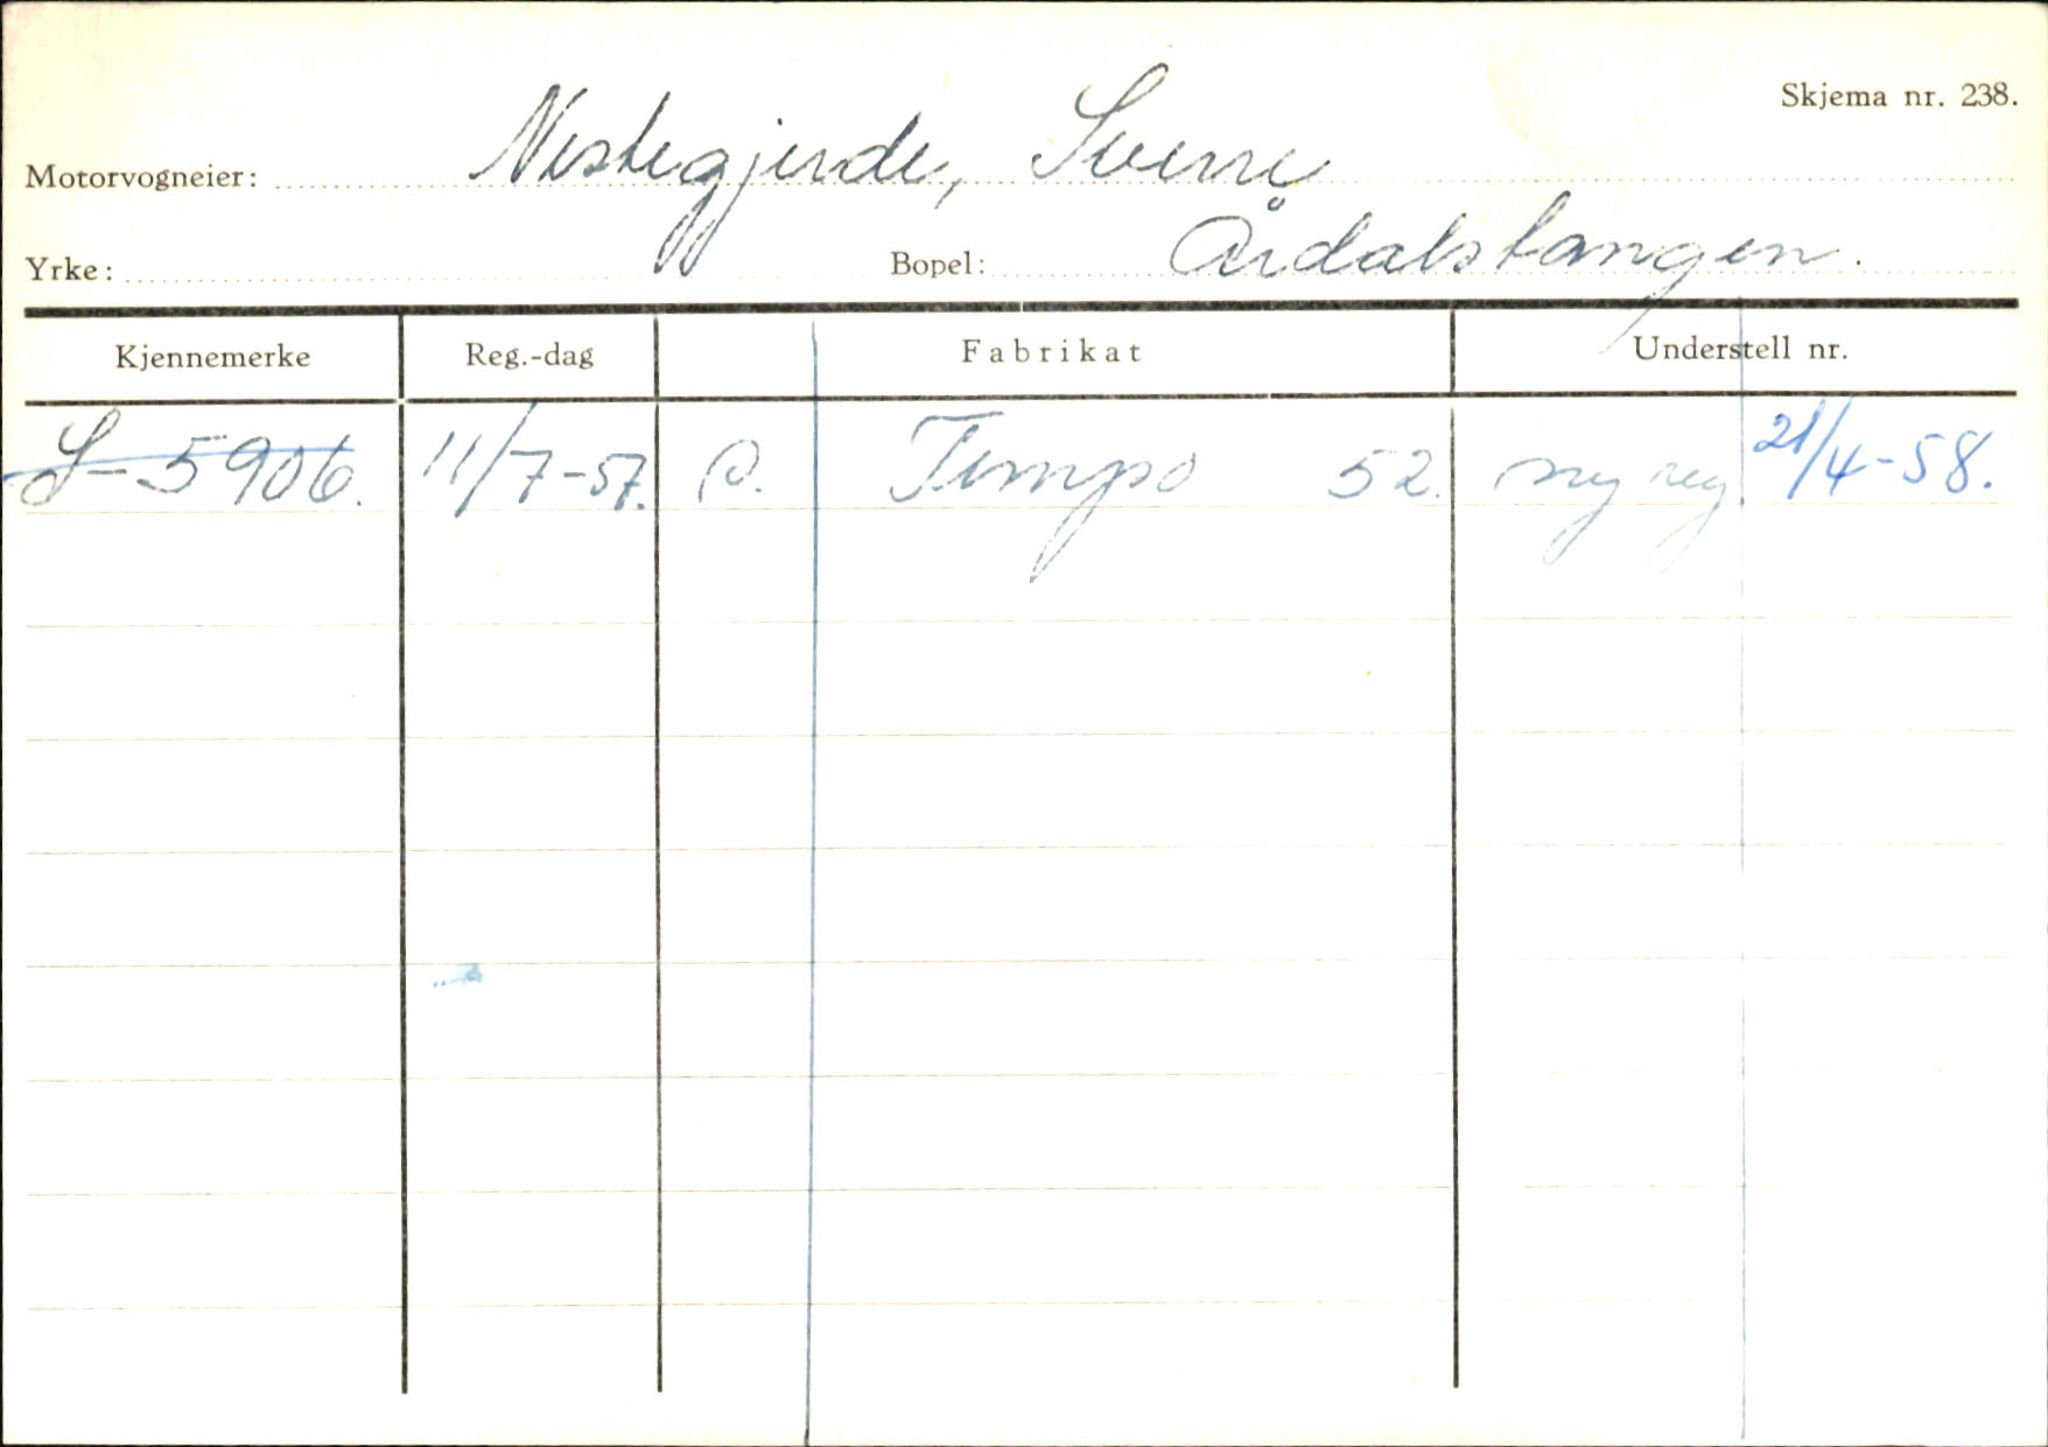 Skjema nr. 238.
Motorvogneier: Nestegjerde, Sverre
Yrke: Bopel: Årdalstangen.
Kjennemerke Reg.-dag Fabrikat Understell nr.
S-5906. 11/7-57. P. Tempo 52. ny reg. 21/4-58.